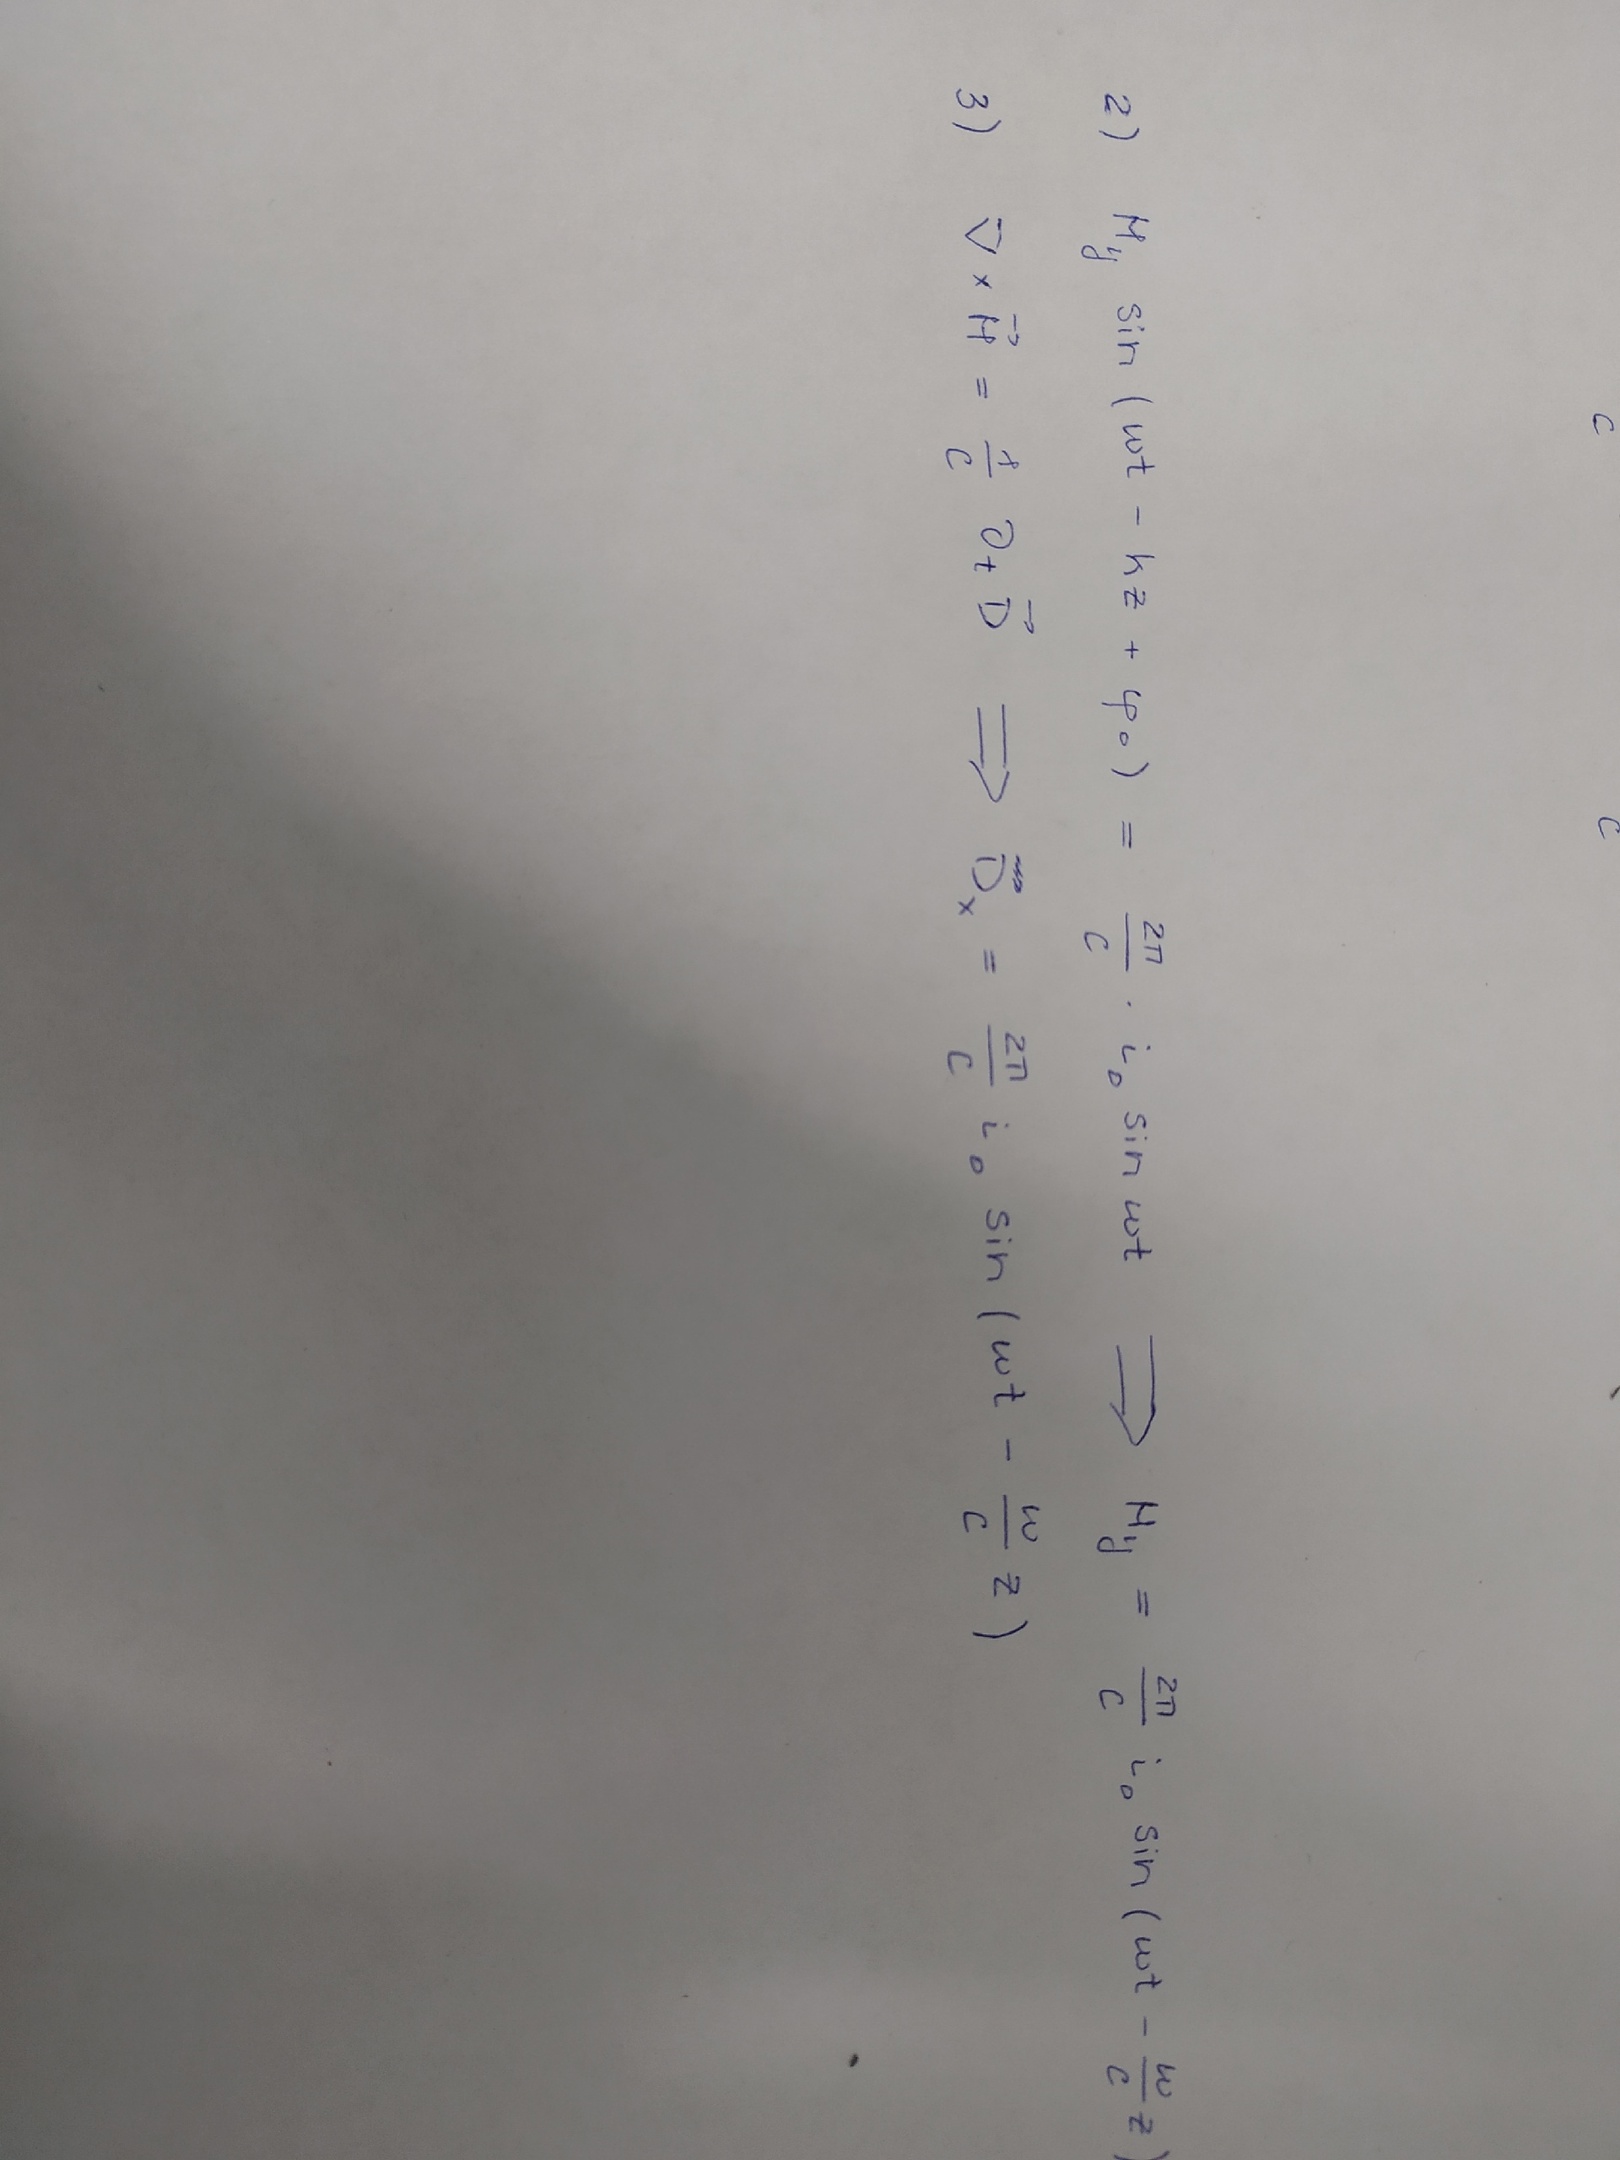 c c
2) Hy sin (ωt - kz + φ₀) = 2π/c · i₀ sin ωt ⟹ Hy = 2π/c i₀ sin (ωt - ω/c z)
3) ∇ × H⃗ = 1/c ∂t D⃗ ⟹ Dx = 2π/c i₀ sin (ωt - ω/c z)